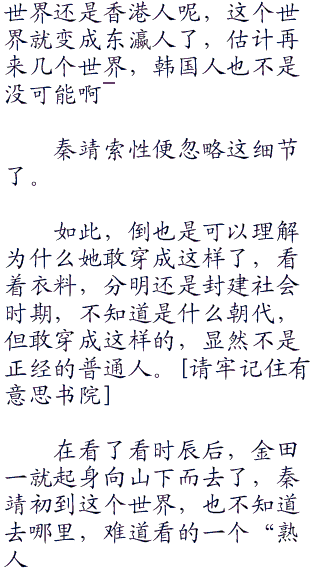 世界还是香港人呢，这个世
界就变成东瀛人了，估计再
来几个世界，韩国人也不是
没可能啊¯
秦靖索性便忽略这细节
了。
如此，倒也是可以理解
为什么她敢穿成这样了，看
着衣料，分明还是封建社会
时期，不知道是什么朝代，
但敢穿成这样的，显然不是
正经的普通人。[请牢记住有
意思书院]
在看了看时辰后，金田
一就起身向山下而去了，秦
靖初到这个世界，也不知道
去哪里，难道看的一个“熟
人